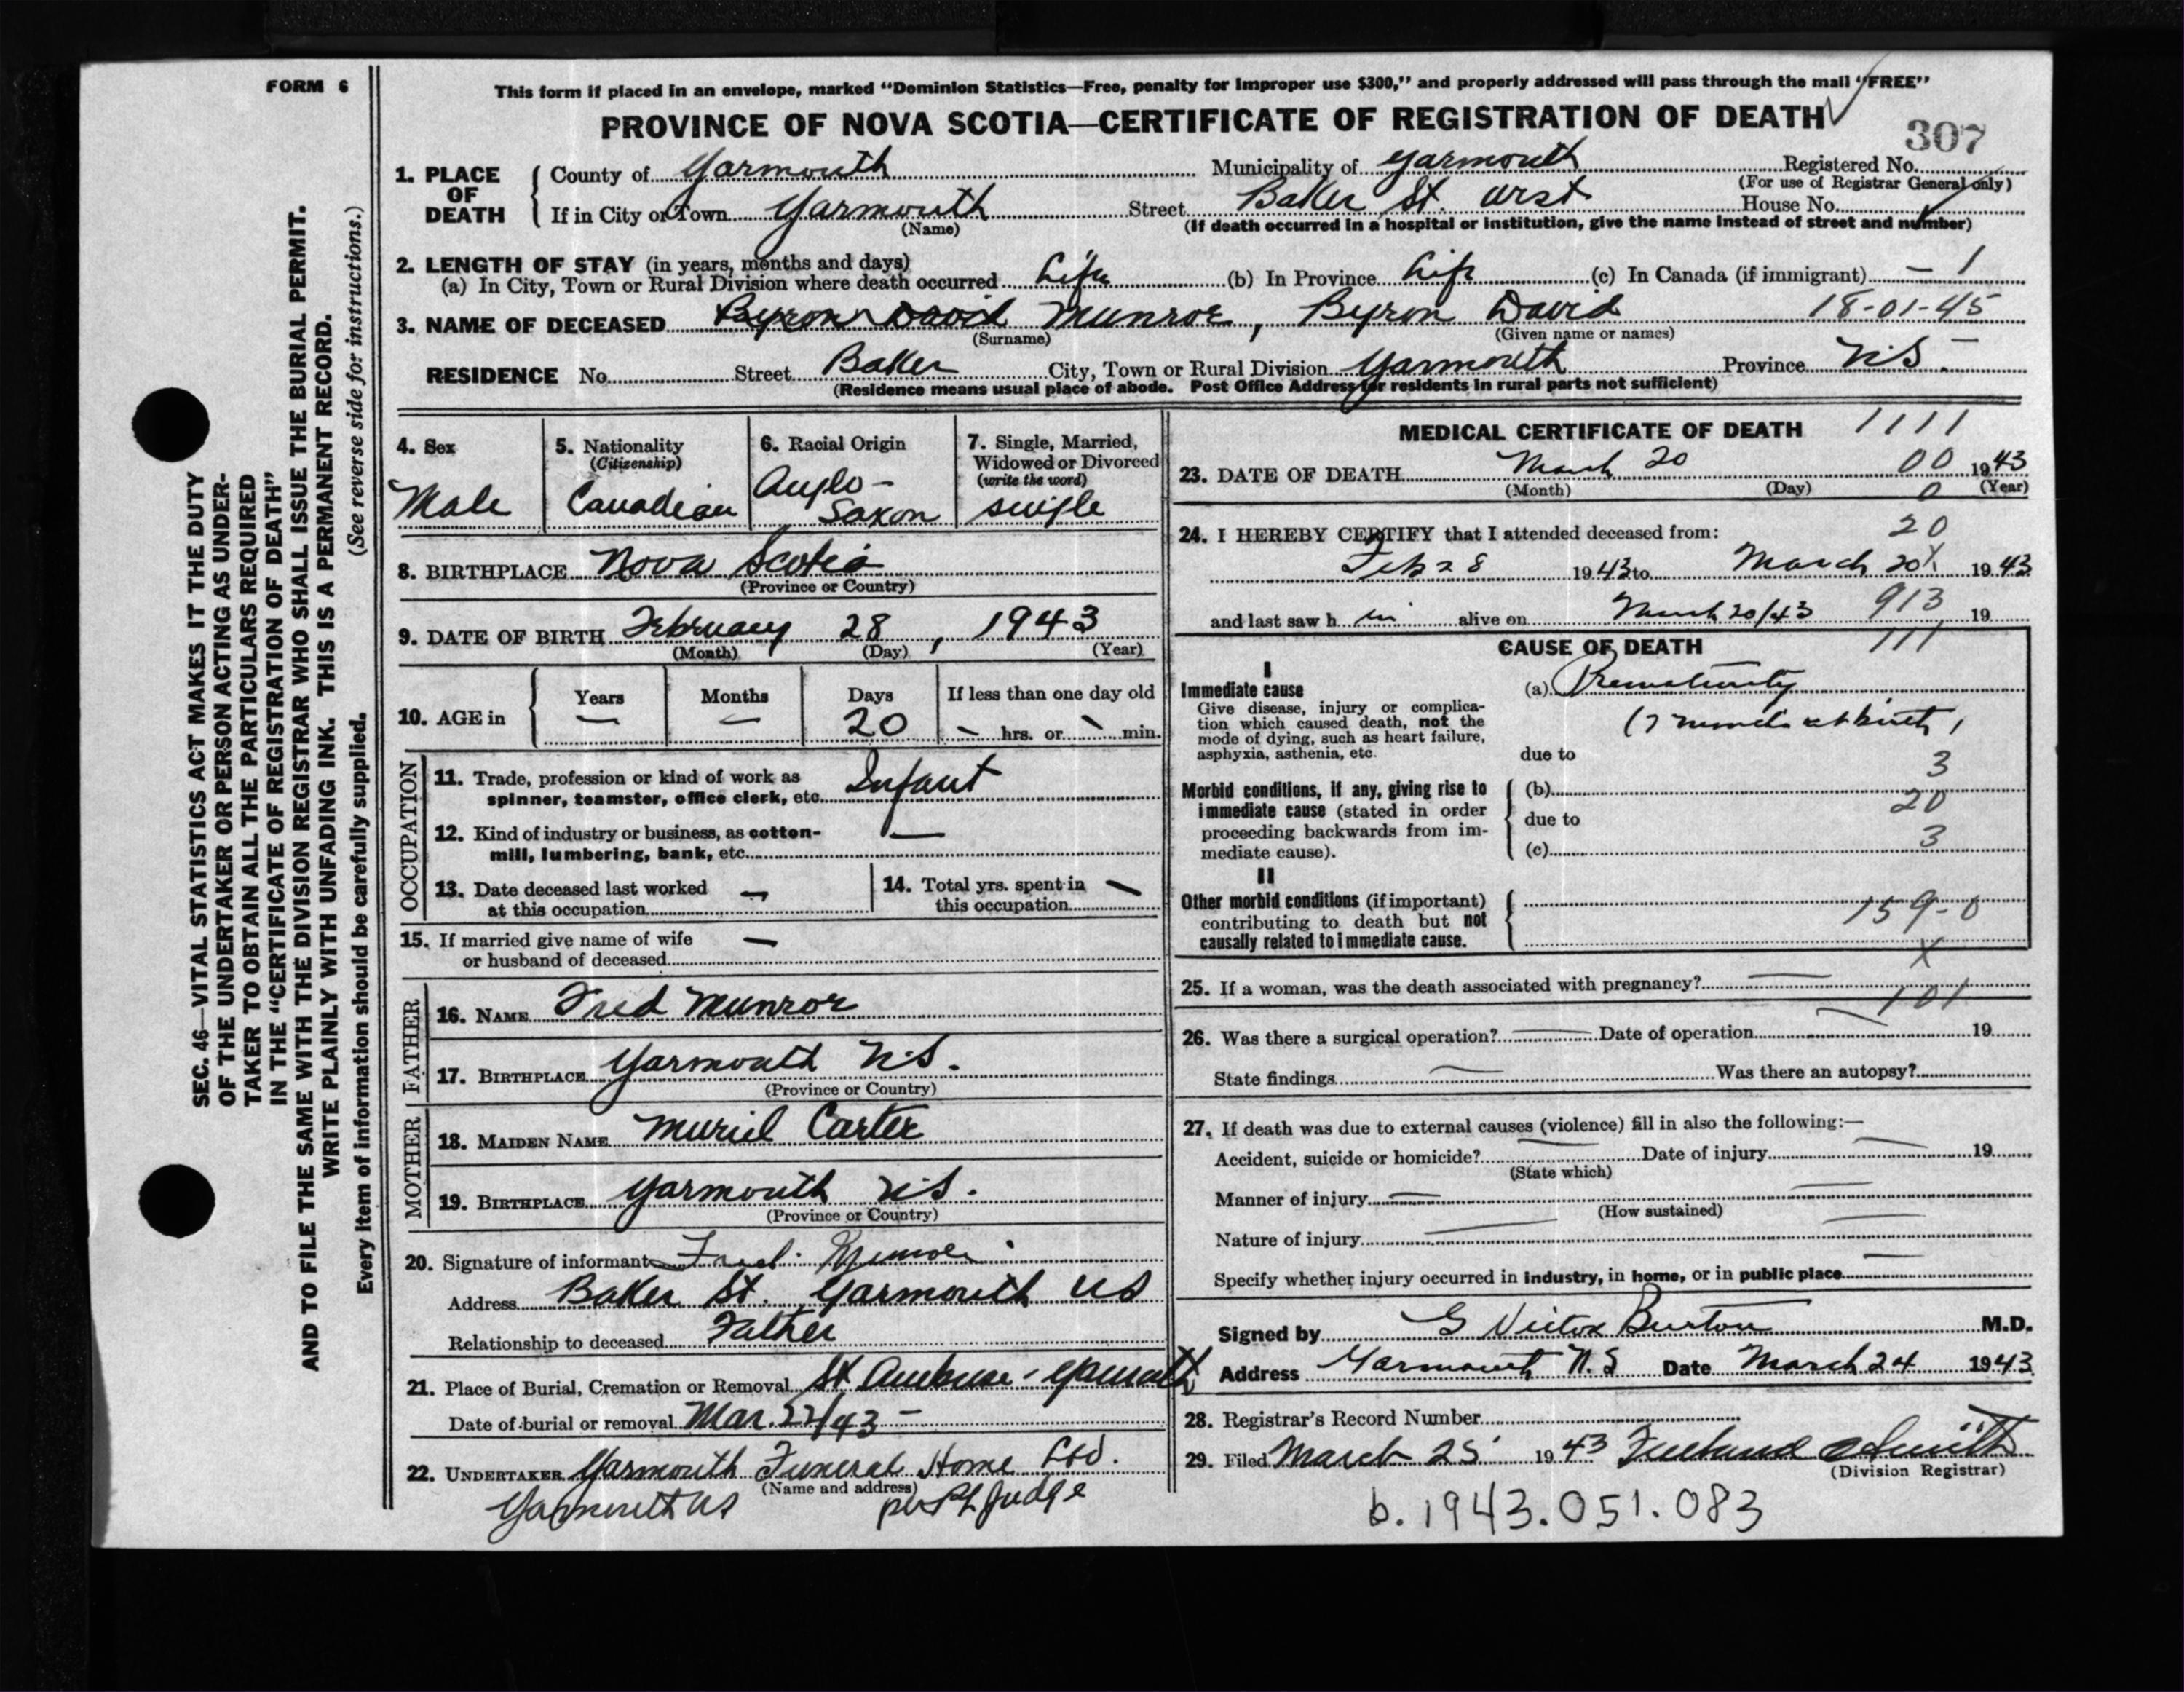 FORM 6
This form if placed in an envelope, marked "Dominion Statistics—Free, penalty for improper use $300," and properly addressed will pass through the mail "FREE"
PROVINCE OF NOVA SCOTIA—CERTIFICATE OF REGISTRATION OF DEATH
307
1. PLACE OF DEATH
County of Yarmouth Municipality of Yarmouth Registered No.
(For use of Registrar General only)
If in City or Town Yarmouth Street Baker St. West House No.
(Name) (If death occurred in a hospital or institution, give the name instead of street and number)
2. LENGTH OF STAY (in years, months and days)
(a) In City, Town or Rural Division where death occurred Life (b) In Province Life (c) In Canada (if immigrant) — 1
3. NAME OF DECEASED Byron David Munroe, Byron David 18-01-45
(Surname) (Given name or names)
RESIDENCE No. Street Baker City, Town or Rural Division Yarmouth Province N.S.
(Residence means usual place of abode. Post Office Address for residents in rural parts not sufficient)
4. Sex
Male
5. Nationality
(Citizenship)
Canadian
6. Racial Origin
Anglo-
Saxon
7. Single, Married,
Widowed or Divorced
(write the word)
single
8. BIRTHPLACE Nova Scotia
(Province or Country)
9. DATE OF BIRTH February 28, 1943
(Month) (Day) (Year)
10. AGE in
Years —
Months —
Days 20
If less than one day old
— hrs. or — min.
OCCUPATION
11. Trade, profession or kind of work as
spinner, teamster, office clerk, etc. Infant
12. Kind of industry or business, as cotton-
mill, lumbering, bank, etc. —
13. Date deceased last worked
at this occupation —
14. Total yrs. spent in
this occupation —
15. If married give name of wife
or husband of deceased —
FATHER
16. NAME Fred Munroe
17. BIRTHPLACE Yarmouth N.S.
(Province or Country)
MOTHER
18. MAIDEN NAME Muriel Carter
19. BIRTHPLACE Yarmouth N.S.
(Province or Country)
20. Signature of informant Fred Munroe
Address Baker St. Yarmouth NS
Relationship to deceased Father
21. Place of Burial, Cremation or Removal St Ambrose - Yarmouth
Date of burial or removal Mar. 22/43 —
22. UNDERTAKER Yarmouth Funeral Home Ltd.
(Name and address)
Yarmouth NS per Judge
MEDICAL CERTIFICATE OF DEATH 1111
23. DATE OF DEATH March 20 00 1943
(Month) (Day) 0 (Year)
24. I HEREBY CERTIFY that I attended deceased from: 20
Feb 28 1943 to March 20 X 1943
and last saw h im alive on March 20/43 913 19
CAUSE OF DEATH 111
I
Immediate cause
Give disease, injury or complica-
tion which caused death, not the
mode of dying, such as heart failure,
asphyxia, asthenia, etc.
(a) Prematurity
(7 months at birth)
due to
3
Morbid conditions, if any, giving rise to
immediate cause (stated in order
proceeding backwards from im-
mediate cause).
(b)
20
due to
3
(c)
II
Other morbid conditions (if important)
contributing to death but not
causally related to immediate cause.
159-0
X
25. If a woman, was the death associated with pregnancy? —
101
26. Was there a surgical operation? — Date of operation — 19
State findings — Was there an autopsy?
27. If death was due to external causes (violence) fill in also the following:—
Accident, suicide or homicide? — Date of injury — 19
(State which)
Manner of injury —
(How sustained)
Nature of injury —
Specify whether injury occurred in industry, in home, or in public place —
Signed by G Victor Burton M.D.
Address Yarmouth N.S Date March 24 1943
28. Registrar's Record Number
29. Filed March 25 1943 Smith
(Division Registrar)
b. 1943.051.083
SEC. 46—VITAL STATISTICS ACT MAKES IT THE DUTY
OF THE UNDERTAKER OR PERSON ACTING AS UNDER-
TAKER TO OBTAIN ALL THE PARTICULARS REQUIRED
IN THE "CERTIFICATE OF REGISTRATION OF DEATH"
AND TO FILE THE SAME WITH THE DIVISION REGISTRAR WHO SHALL ISSUE THE BURIAL PERMIT.
WRITE PLAINLY WITH UNFADING INK. THIS IS A PERMANENT RECORD.
(See reverse side for instructions.)
Every item of information should be carefully supplied.